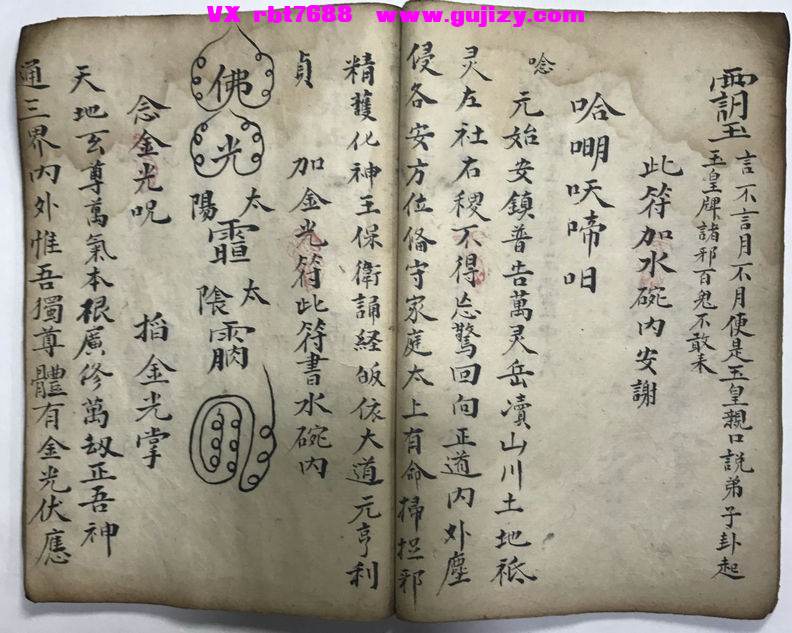 VX rbt7688 www.gujizy.com
言不言月不月便是玉皇親口説弟子卦起
玉皇牌諸邪百鬼不敢来
此符加水碗内安謝
哈𠵇吷啼呾
唸
元始安鎮普告萬灵岳瀆山川土地祇
灵左社右稷不得忘驚回向正道内外塵
侵各安方位俻守家庭太上有命掃捉邪
精護化神王保衛誦経皈依大道元亨利
貞
加金光符此符書水碗内
佛
光
太陽
太陰
念金光呪
掐金光掌
天地玄尊萬氣本根廣修萬劫正吾神
通三界内外惟吾獨尊體有金光伏應